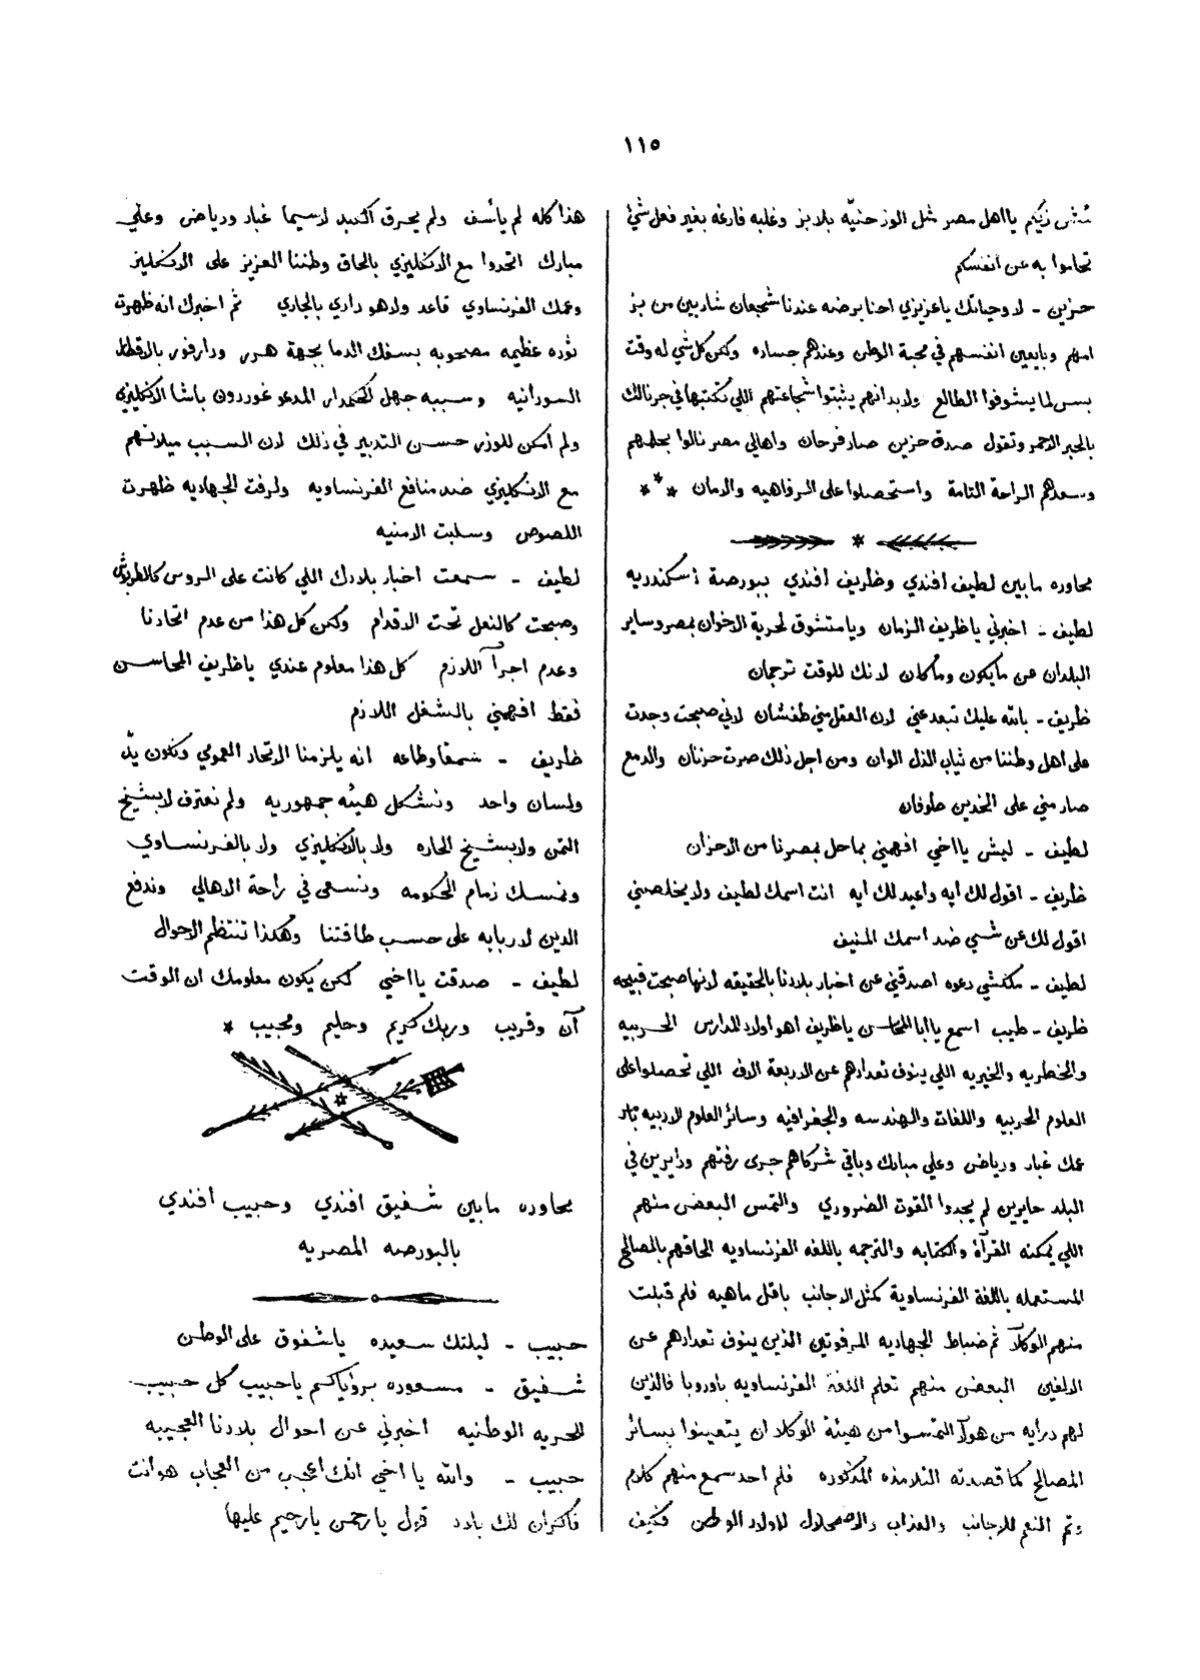 ١١٥
مش زيكم يا اهل مصر مثل الوز حنيّه بلا بز وغلبه فارغه بغير فعل شئ
تحاموا به عن انفسكم
حزين - لا وحياتك يا عزيزي احنا برضه عندنا شجعان شاربين من بز
امهم وبايعين انفسهم في محبة الوطن وعندهم جساره ولكن كل شي له وقت
بس لما يشوفوا الطالع ولا بد انهم يثبتوا شجاعتهم اللي تكتبها في جرنالك
بالحبر الاحمر وتقول صدق حزين صار فرحان واهالي مصر نالوا بحلمهم
وسعدهم الراحة التامة واستحصلوا على الرفاهيه والامان
محاوره ما بين لطيف افندي وظريف افندي ببورصة اسكندريه
لطيف - اخبرني يا ظريف الزمان ويا متشوق لحرية الاخوان بمصر وساير
البلدان عن ما يكون وما كان لانك للوقت ترجمان
ظريف - بالله عليك تبعد عني لان العقل مني طفشان لاني صبحت وجدت
على اهل وطننا من ثياب الذل الوان ومن اجل ذلك صرت حزنان والدمع
صار مني على الخدين طوفان
لطيف - ليش يا اخي افهمني بما حل بمصرنا من الاحزان
ظريف - اقول لك ايه واعيد لك ايه انت اسمك لطيف ولا يخلصني
اقول لك عن شي ضد اسمك المنيف
لطيف - ملكشي دعوه اصدقني عن اخبار بلادنا بالحقيقه لانها صبحت قبيحه
ظريف - طيب اسمع يا ابا المحاسن يا ظريف اهو اولاد المدارس الحربيه
والخطريه والخيريه اللي ينوف تعدادهم عن الاربعة الاف اللي تحصلوا على
العلوم الحربيه واللغات والهندسه والجغرافيه وسائر العلوم الادبيه
عمك غبار ورياض وعلي مبارك وباقي شركاهم جرى رفتهم ودايرين في
البلد حايرين لم يجدوا القوت الضروري والتمس البعض منهم
اللي يمكنه القرآة والكتابه والترجمه باللغه الفرنساويه الحاقهم بالمصالح
المستعمله باللغة الفرنساوية كمثل الاجانب باقل ماهيه فلم قبلت
منهم الوكلآ ثم ضباط الجهاديه المرفوتين الذين ينوف تعدادهم عن
الالفين البعض منهم تعلم اللغة الفرنساويه باوروبا فالذين
لهم درايه من هولآ التمسوا من هيئة الوكلا ان يتعينوا بسائر
المصالح كما قصدته التلامذه المذكوره فلم احد سمع منهم كلام
وتم النعم للاجانب والعذاب والاضمحلال لاولاد الوطن فكيف
هذا كله لم يأسف ولم يحرق الكبد لاسيما غبار ورياض وعلي
مبارك اتحدوا مع الانكليزي بالحاق وطننا العزيز على الانكليز
وعمك الفرنساوي قاعد ولا هو داري بالجاري ثم اخبرك انه ظهرت
ثوره عظيمه مصحوبه بسفك الدما بجهة هرر ودارفور بالاقطار
السودانيه وسببه جهل الحكمدار المدعو غوردون باشا الانكليزي
ولم امكن للوزر حسن التدبير في ذلك لان السبب ميلانهم
مع الانكليزي ضد منافع الفرنساويه ولرفت الجهاديه ظهرت
اللصوص وسلبت الامنيه
لطيف - سمعت اخبار بلادك اللي كانت على الروس كالطربوش
وصبحت كالنعل تحت الاقدام ولكن كل هذا من عدم اتحادنا
وعدم اجرآ اللازم كل هذا معلوم عندي يا ظريف المحاسن
فقط افهمني بالشغل اللازم
ظريف - سمعًا وطاعه انه يلزمنا الاتحاد العمومي ونكون يدّ
ولسان واحد ونشكل هيئه جمهوريه ولم نعترف لا بشيخ
التمن ولا بشيخ الحاره ولا بالانكليزي ولا بالفرنساوي
ونمسك زمام الحكومه ونسعى في راحة الاهالي وندفع
الدين لاربابه على حسب طاقتنا وهكذا تنتظم الاحوال
لطيف - صدقت يا اخي لكن يكون معلومك ان الوقت
آن وقريب وربك كريم وحليم ومجيب *
محاوره ما بين شفيق افندي وحبيب افندي
بالبورصه المصريه
حبيب - ليلتك سعيده يا شفوق على الوطن
شفيق - مسعوده برؤياكم يا حبيب كل حبيب
للحريه الوطنيه اخبرني عن احوال بلادنا العجيبه
حبيب - والله يا اخي انك اعجب من العجاب هو انت
فاكر ان لك بلاد قول يا رحمن يا رحيم عليها